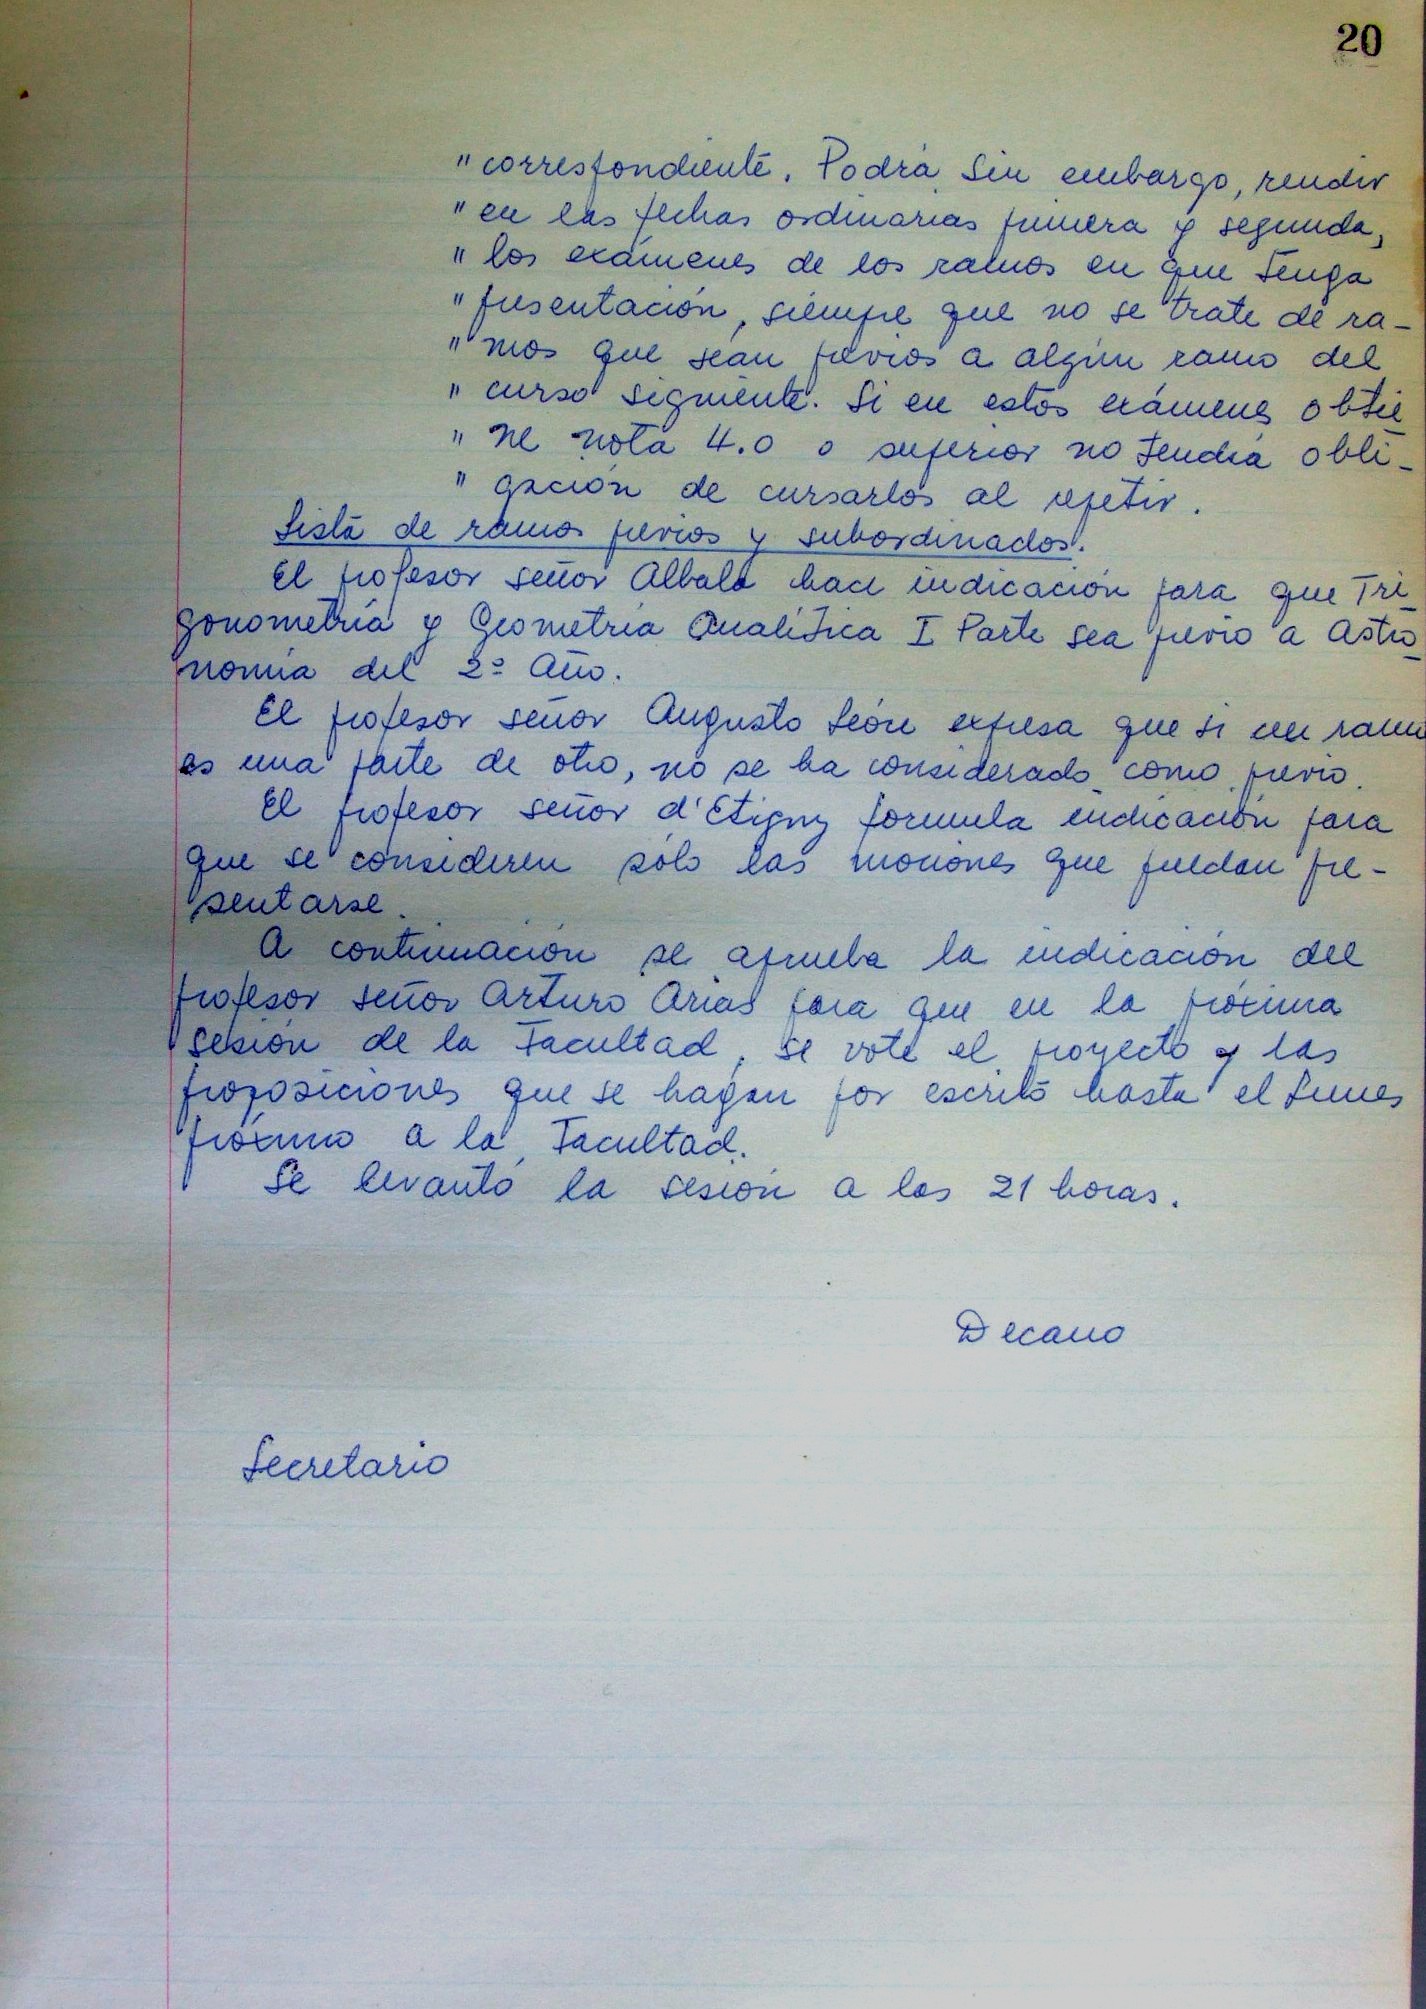 20
" correspondiente. Podrá, sin embargo, rendir
" en las fechas ordinarias primera y segunda,
" los exámenes de los ramos en que tenga
" presentación, siempre que no se trate de ra-
" mos que sean previos a algún ramo del
" curso siguiente. Si en estos exámenes obtie
" ne nota 4.0 o superior no tendrá obli-
" gación de cursarlos al repetir.
Lista de ramos previos y subordinados.
El profesor señor Albala hace indicación para que Tri
gonometría y Geometría Analítica I Parte sea previo a Astro
nomía del 2º Año.
El profesor señor Augusto León expresa que si un ramo
es una parte de otro, no se ha considerado como previo.
El profesor señor d'Etigny formula indicación para
que se consideren sólo las mociones que puedan pre-
sentarse.
A continuación se aprueba la indicación del
profesor señor Arturo Arias para que en la próxima
sesión de la Facultad, se vote el proyecto y las
proposiciones que se hagan por escrito hasta el Lunes
próximo a la Facultad.
Se levantó la sesión a las 21 horas.
Decano
Secretario